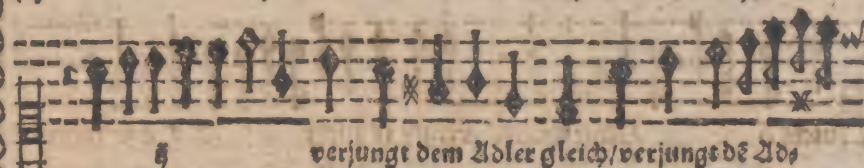 ij verjungt dem Adler gleich/verjungt dẽ Ad⸗